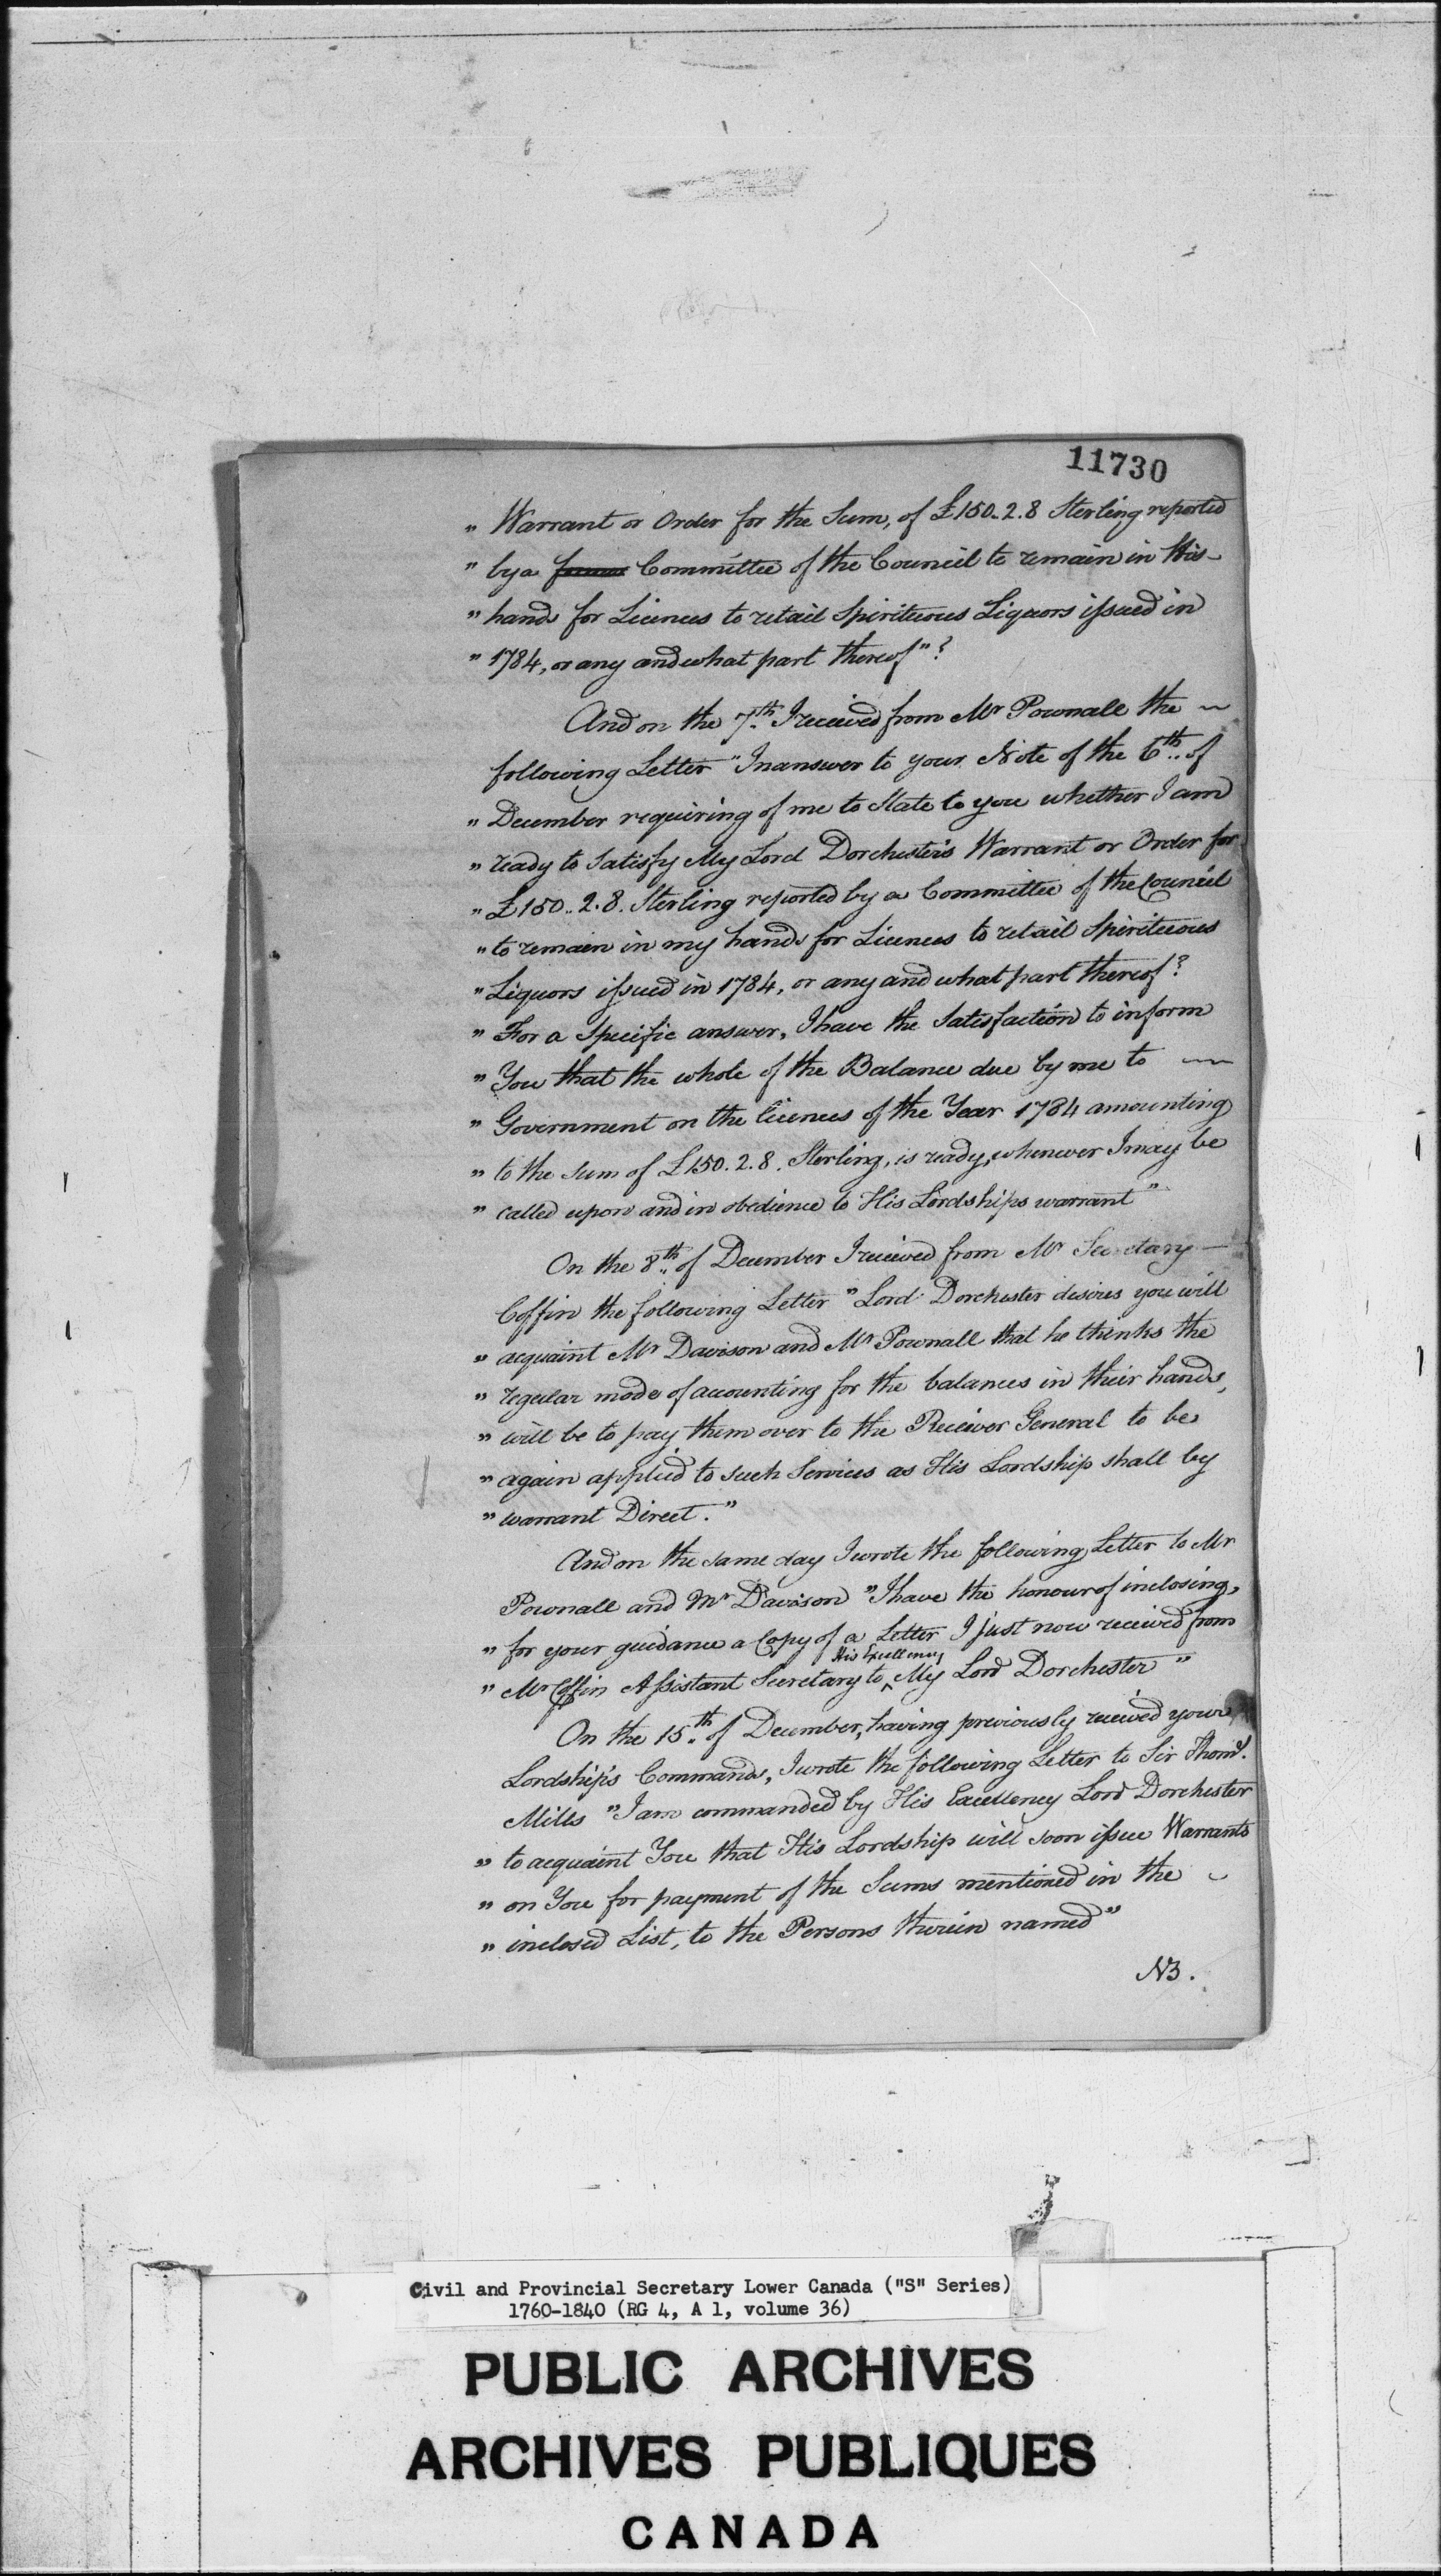 11730
" Warrant or Order for the Sum, of £150.2.8 Sterling reported
" by a former Committee of the Council to remain in His
" hands for Licences to retail Spirituous Liquors issued in
" 1784, or any and what part thereof"?
And on the 7th. I received from Mr Pownall the
following Letter "In answer to your Note of the 6th.. of
" December requiring of me to State to you whether I am
" ready to Satisfy My Lord Dorchester's Warrant or Order for
" £150.. 2.8. Sterling reported by a Committee of the Council
" to remain in my hands for Licences to retail Spirituous
" Liquors issued in 1784, or any and what part thereof?
" For a Specific answer, I have the Satisfaction to inform
" You that the whole of the Balance due by me to
" Government on the licences of the Year 1784 amounting
" to the sum of £150.2.8. Sterling, is ready, whenever I may be
" called upon and in obedience to His Lordships warrant"
On the 8th.. of December I received from Mr Secretary
Coffin the following Letter "Lord Dorchester desires you will
" acquaint Mr Davison and Mr Pownall that he thinks the
" regular mode of accounting for the balances in their hands,
" will be to pay them over to the Receiver General to be
" again applied to such Services as His Lordship shall by
" warrant Direct."
And on the same day I wrote the following Letter to Mr
Pownall and Mr Davison "I have the honour of inclosing,
" for your guidance a Copy of a Letter I just now received from
" Mr Coffin Assistant Secretary to ^ His Excellency My Lord Dorchester"
On the 15th. of December, having previously received your
Lordship's Commands, I wrote the following Letter to Sir Thoms.
Mills "I am commanded by His Excellency Lord Dorchester
" to acquaint You that His Lordship will soon issue Warrants
" on You for payment of the Sums mentioned in the
" inclosed List, to the Persons therein named"
NB.
Civil and Provincial Secretary Lower Canada ("S" Series)
1760-1840 (RG 4, A 1, volume 36)
PUBLIC ARCHIVES
ARCHIVES PUBLIQUES
CANADA